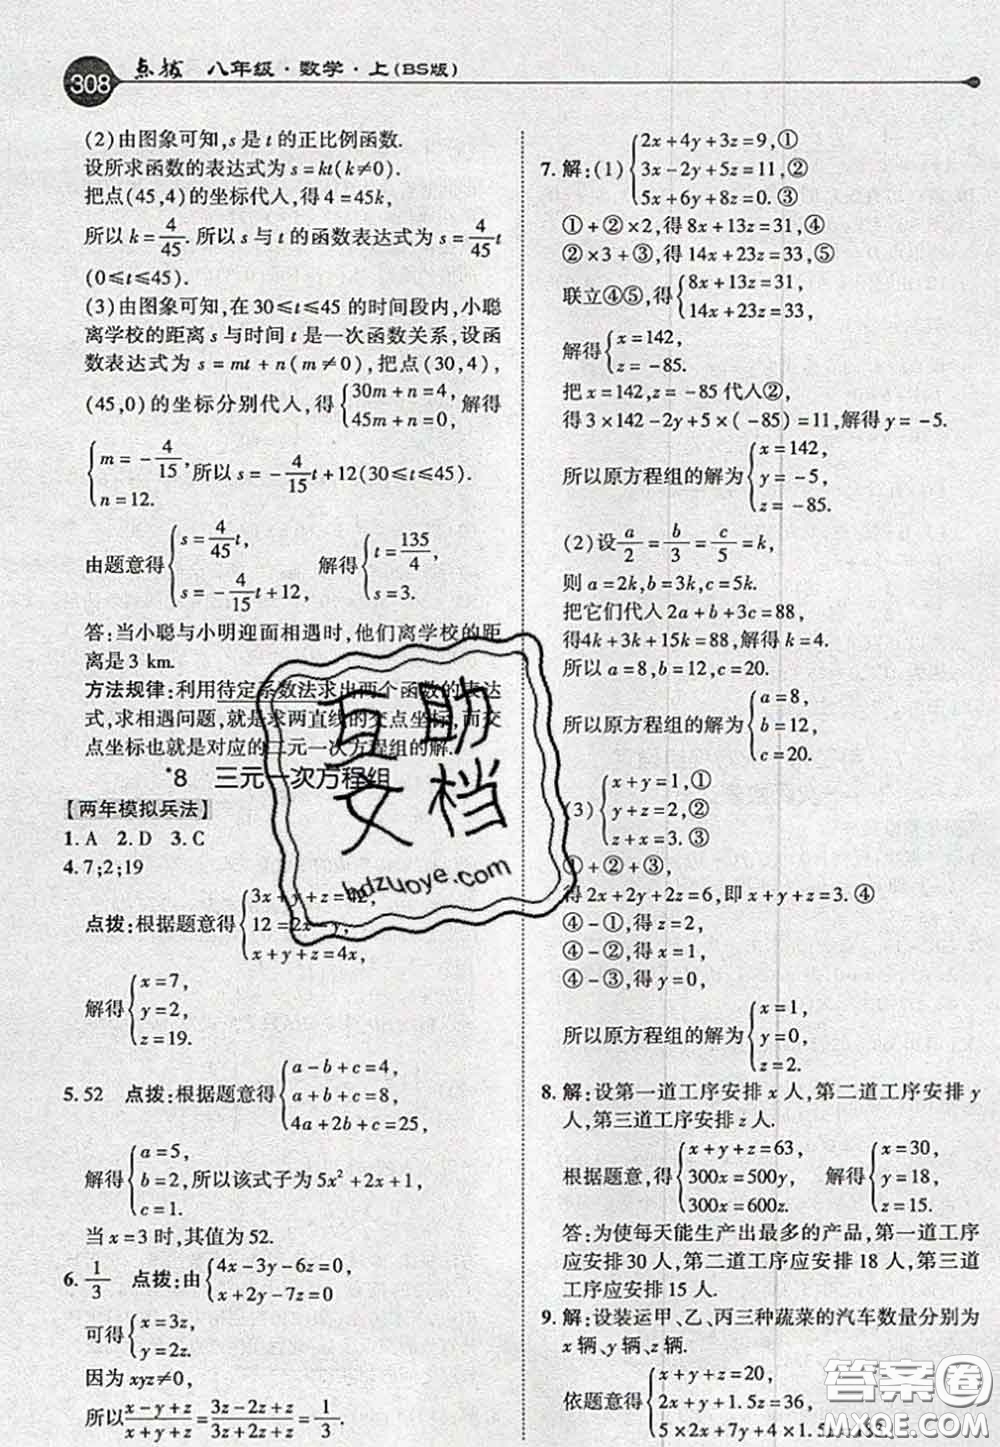 308 点拨 八年级·数学·上(BS版)
(2)由图象可知,s是t的正比例函数.
设所求函数的表达式为s=kt(k≠0).
把点(45,4)的坐标代人,得4=45k,
所以k=4/45.所以s与t的函数表达式为s=4/45t
(0≤t≤45).
(3)由图象可知,在30≤t≤45的时间段内,小聪
离学校的距离s与时间t是一次函数关系,设函
数表达式为s=mt+n(m≠0),把点(30,4),
(45,0)的坐标分别代人,得{30m+n=4, 45m+n=0,解得
{m=-4/15, n=12.所以s=-4/15t+12(30≤t≤45).
由题意得{s=4/45t, s=-4/15t+12, 解得{t=135/4, s=3.
答:当小聪与小明迎面相遇时,他们离学校的距
离是3 km.
方法规律:利用待定系数法求出两个函数的表达
式,求相遇问题,就是求两直线的交点坐标,而交
点坐标也就是对应的二元一次方程组的解.
*8 三元一次方程组
【两年模拟兵法】
1.A 2.D 3.C
4.7;2;19
点拨:根据题意得{3x+y+z=42, 12=2x-y, x+y+z=4x,
解得{x=7, y=2, z=19.
5.52 点拨:根据题意得{a-b+c=4, a+b+c=8, 4a+2b+c=25,
解得{a=5, b=2, c=1. 所以该式子为5x²+2x+1,
当x=3时,其值为52.
6.1/3 点拨:由{4x-3y-6z=0, x+2y-7z=0
可得{x=3z, y=2z.
因为xyz≠0,
所以(x-y+z)/(x+y+z)=(3z-2z+z)/(3z+2z+z)=1/3.
7.解:(1){2x+4y+3z=9,① 3x-2y+5z=11,② 5x+6y+8z=0.③
①+②×2,得8x+13z=31,④
②×3+③,得14x+23z=33,⑤
联立④⑤,得{8x+13z=31, 14x+23z=33,
解得{x=142, z=-85.
把x=142,z=-85代人②,
得3×142-2y+5×(-85)=11,解得y=-5.
所以原方程组的解为{x=142, y=-5, z=-85.
(2)设a/2=b/3=c/5=k,
则a=2k,b=3k,c=5k.
把它们代人2a+b+3c=88,
得4k+3k+15k=88,解得k=4.
所以a=8,b=12,c=20.
所以原方程组的解为{a=8, b=12, c=20.
(3){x+y=1,① y+z=2,② z+x=3.③
①+②+③,
得2x+2y+2z=6,即x+y+z=3.④
④-①,得z=2,
④-②,得x=1,
④-③,得y=0,
所以原方程组的解为{x=1, y=0, z=2.
8.解:设第一道工序安排x人,第二道工序安排y
人,第三道工序安排z人.
根据题意,得{x+y+z=63, 300x=500y, 300x=600z. 解得{x=30, y=18, z=15.
答:为使每天能生产出最多的产品,第一道工序
应安排30人,第二道工序应安排18人,第三道
工序应安排15人.
9.解:设装运甲、乙、丙三种蔬菜的汽车数量分别为
x辆、y辆、z辆.
依题意得{x+y+z=30, 2x+y+1.5z=36, 5×2x+7y+4×1.5z=183.
互助
文档
hdzuoye.com
答案圈
MXQE.COM